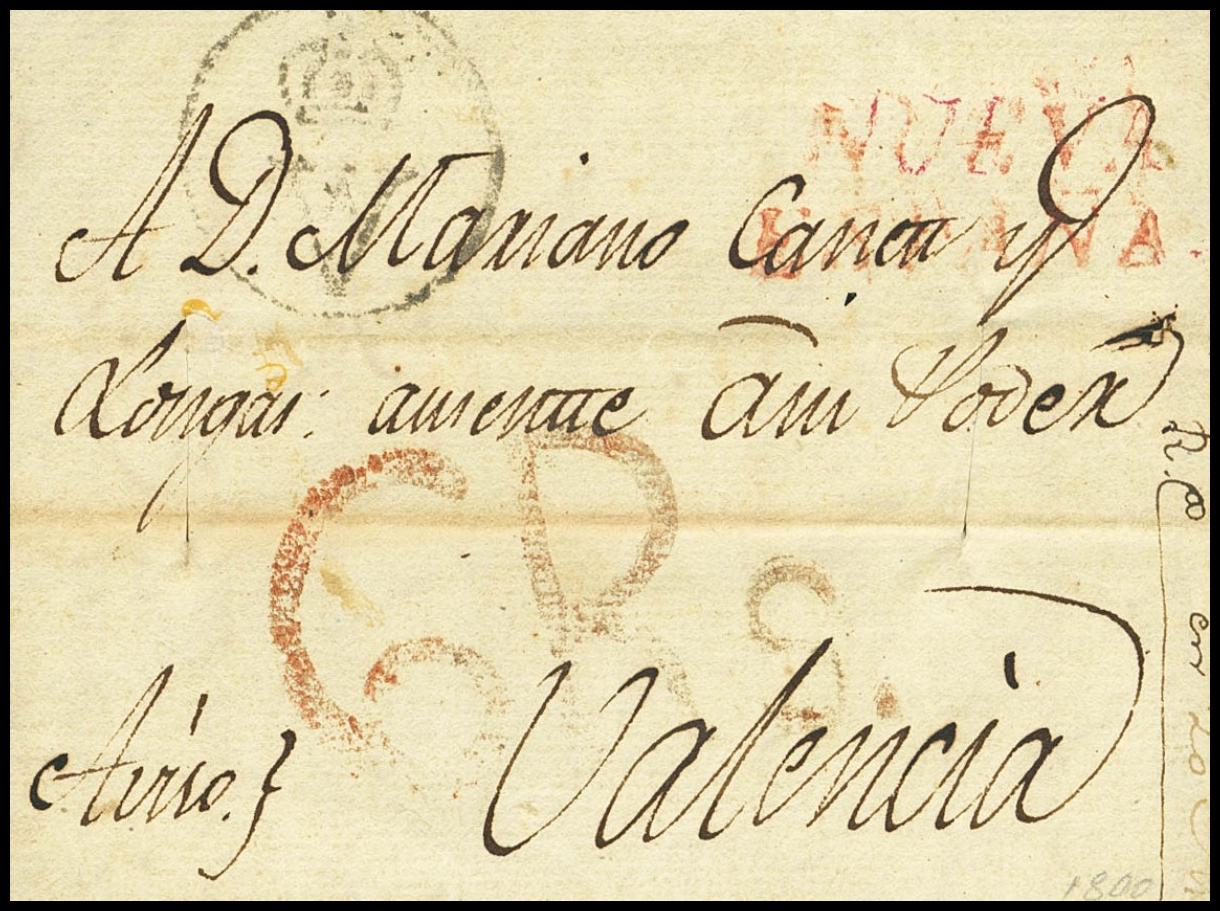 NUEVA
ESPAÑA.
A D. Mariano Canet y
Longas: ausente a su Poder
6 Rs.
Aviso. } Valencia
R.
en 20
1800